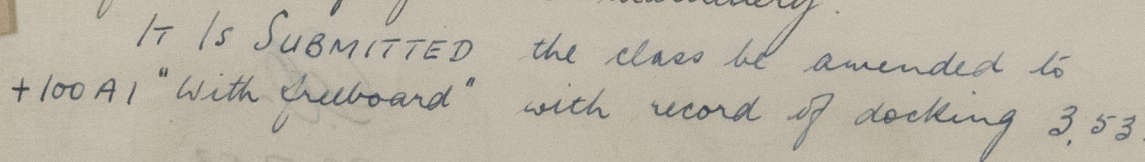 machinery.
It Is SUBMITTED the class be amended to
+100 A1 "With freeboard" with record of docking 3,53.